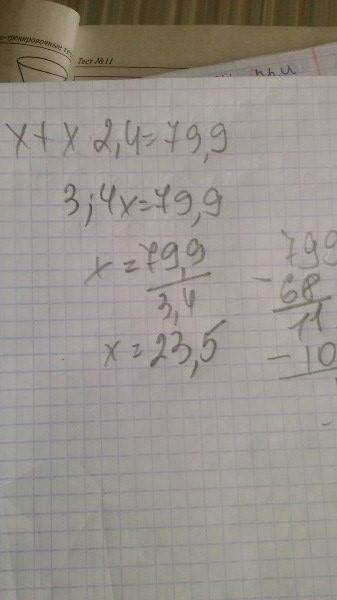 -тренировочные те
Тест №11
x+x 2,4=79,9
3,4x=79,9
x=79,9
3,4
x=23,5
799
-68
11
-10